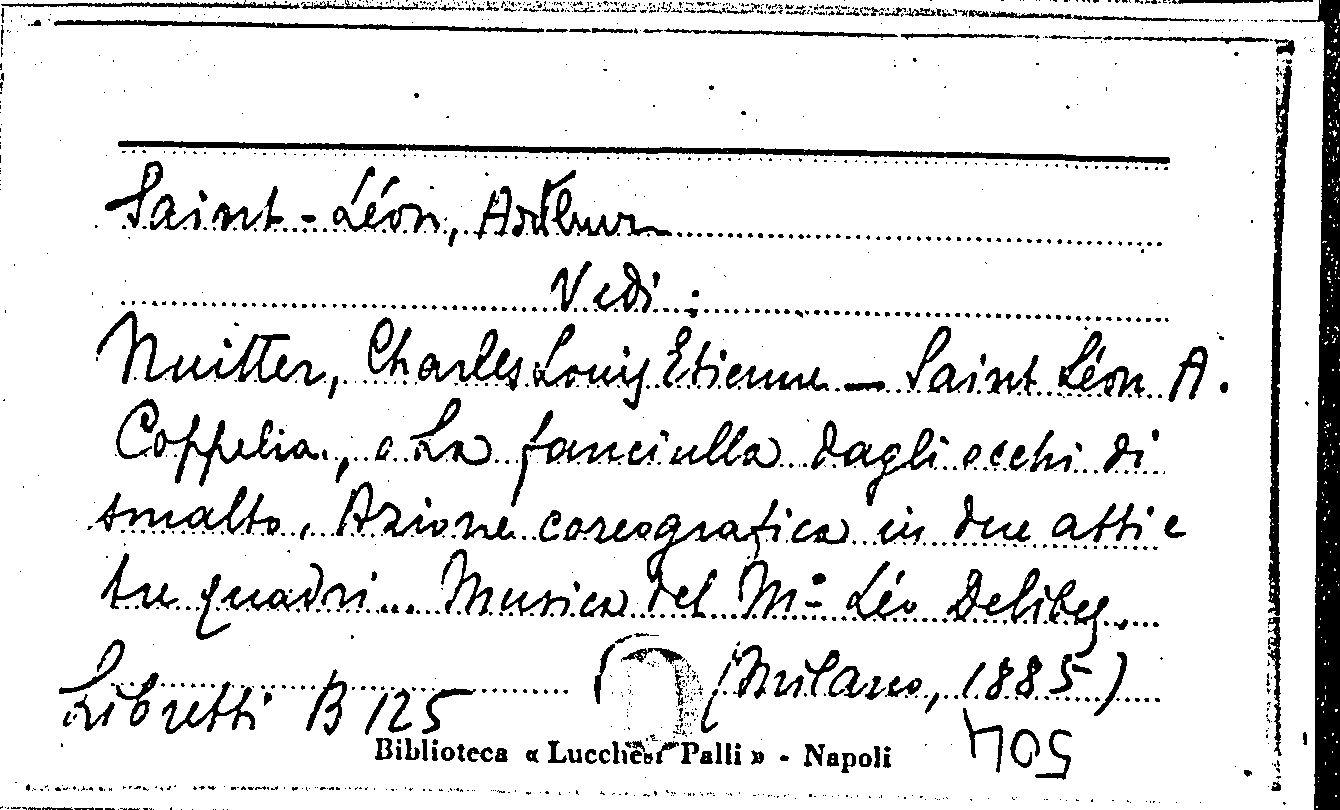 Saint-Léon, Arthur
Vedi:
Nuitter, Charles Louis Etienne — Saint Léon A.
Coppelia, o La fanciulla dagli occhi di
smalto. Azione coreografica in due atti e
tre quadri... Musica del Mº Léo Delibes.
(Milano, 1885)
Libretti B 125
504
Biblioteca « Lucchesi Palli » - Napoli